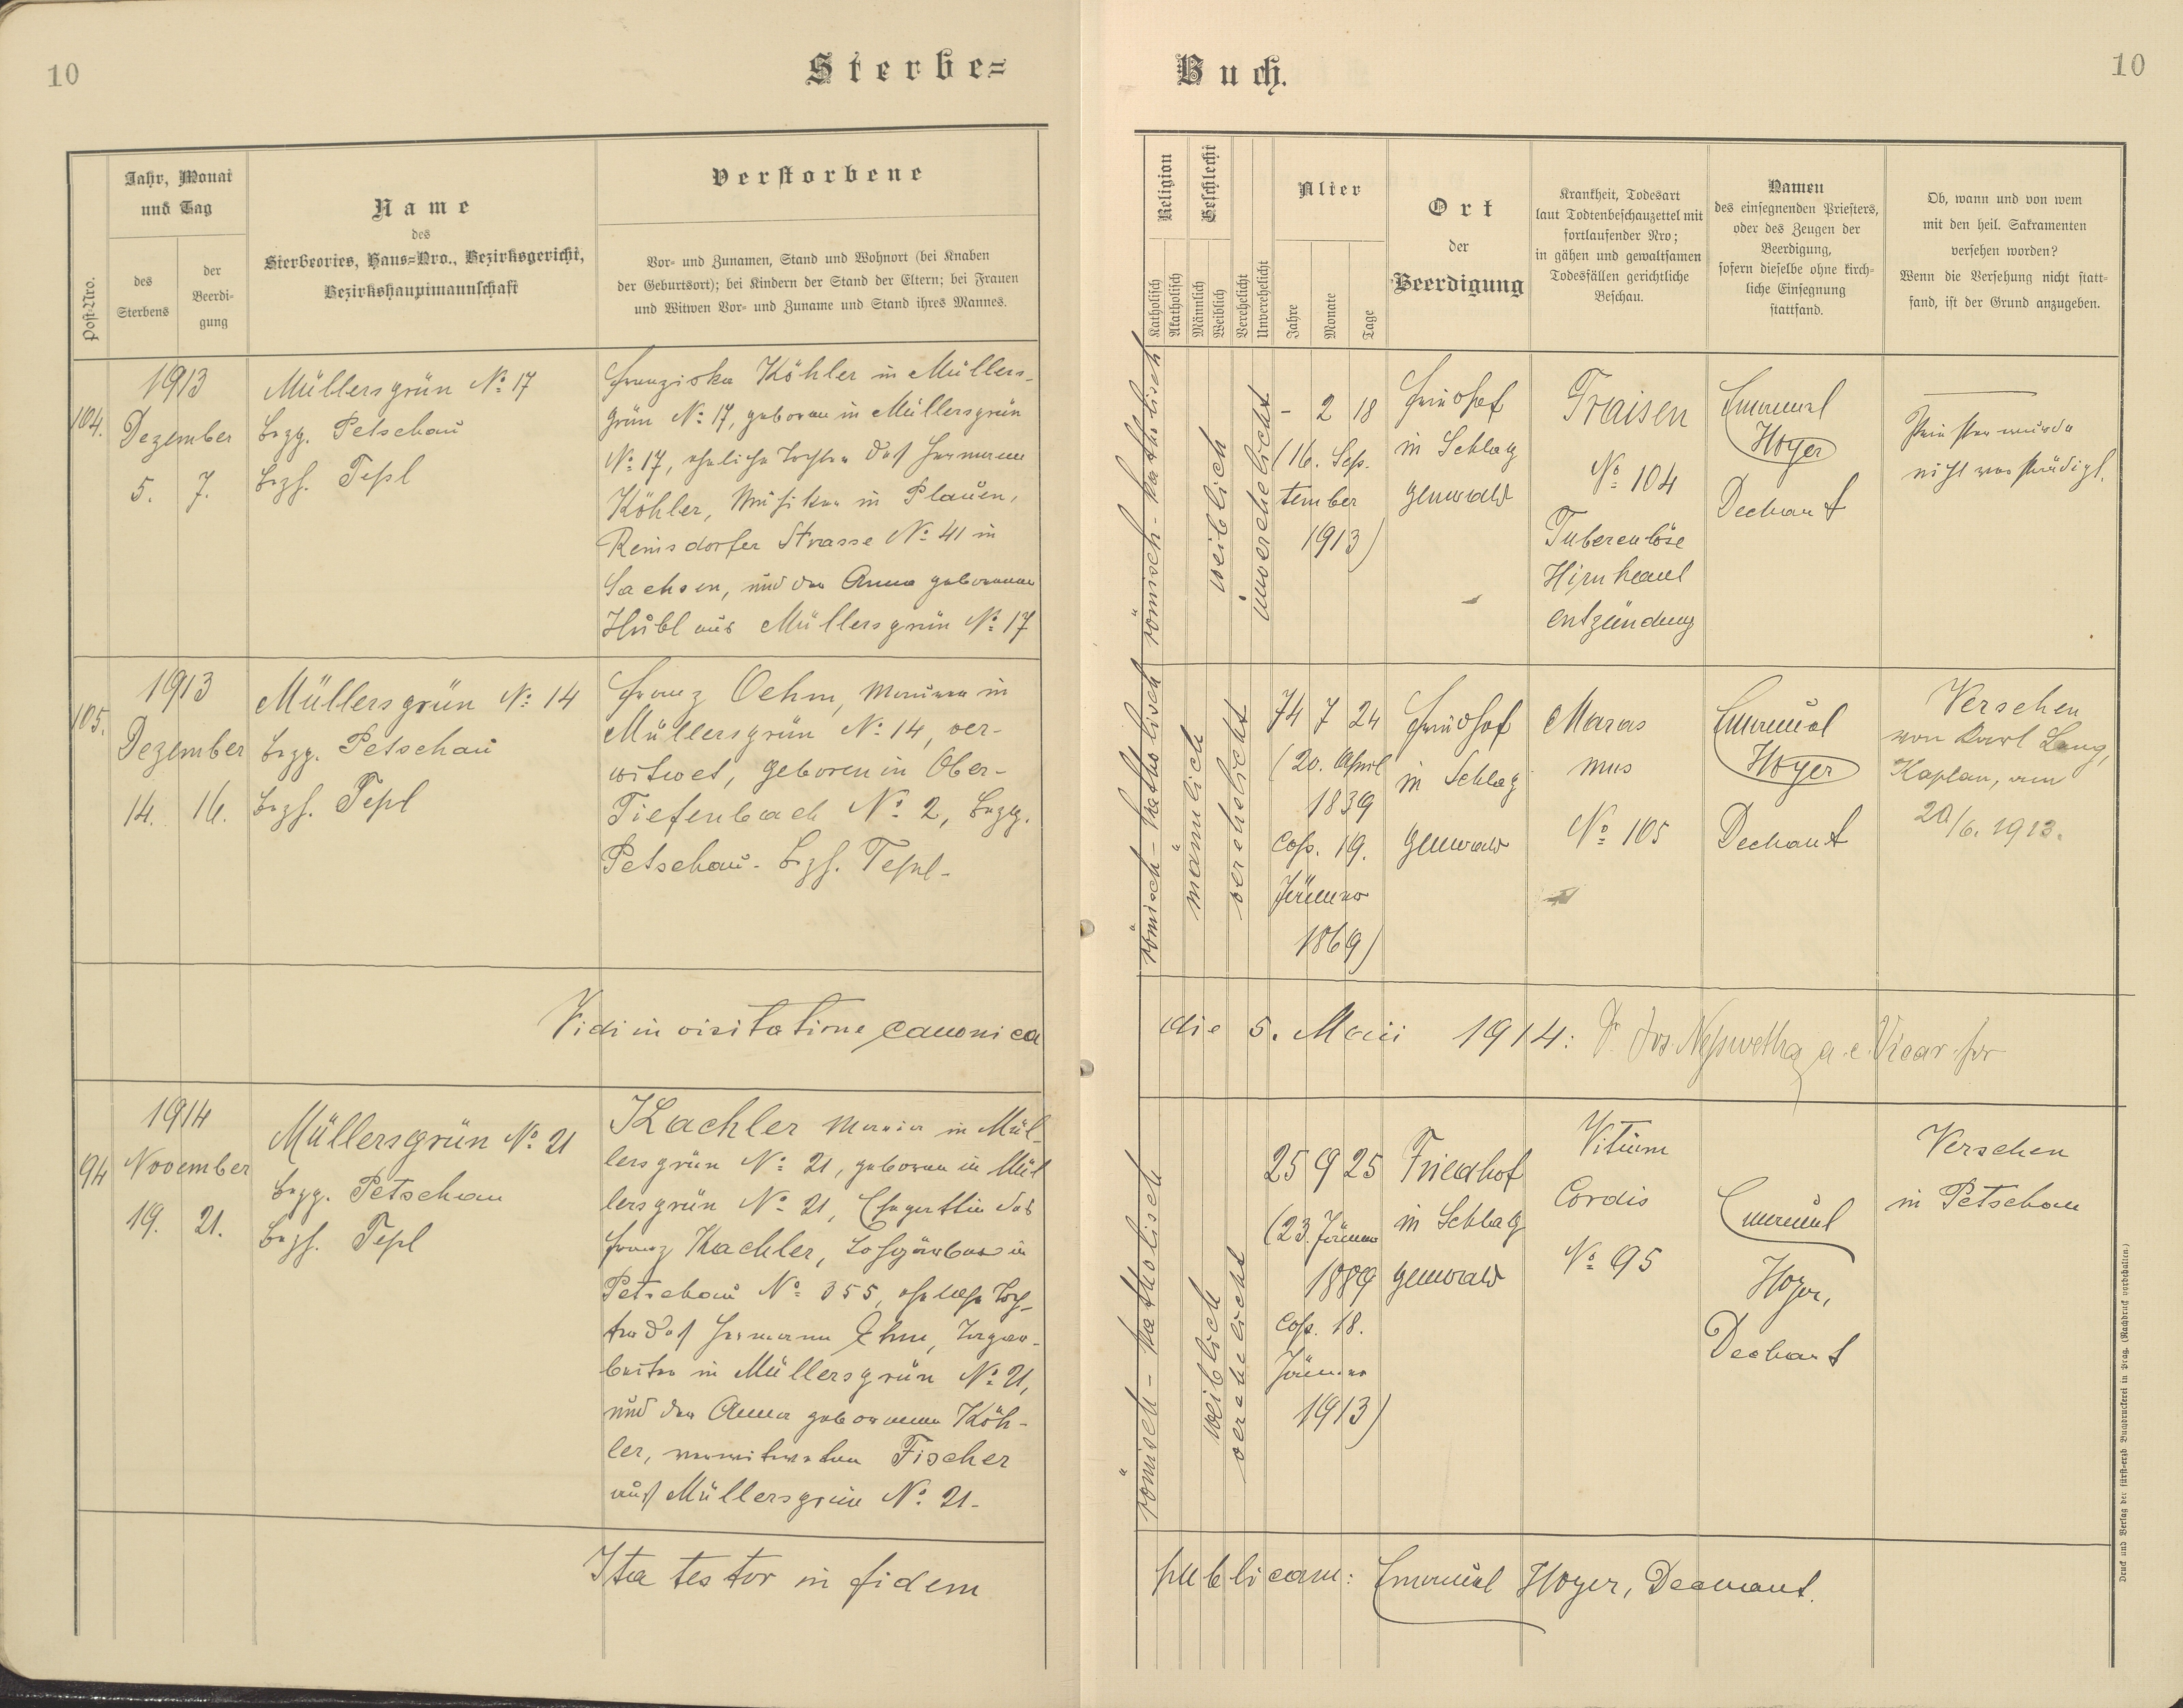 10
Sterbe=
Jahr, Monat
und Tag
Post-Nro.
des
Sterbens
der
Beerdi-
gung
Name
des
Sterbeortes, Haus=Nro., Bezirksgericht,
Bezirkshauptmannschaft
Verstorbene
Vor- und Zunamen, Stand und Wohnort (bei Knaben
der Geburtsort); bei Kindern der Stand der Eltern; bei Frauen
und Witwen Vor- und Zuname und Stand ihres Mannes.
104.
1913
Dezember
5. 7.
Müllersgrün No 17
Bezg. Petschau
Bezh. Tepl
Franziska Köhler in Müllers-
grün No 17, geboren in Müllersgrün
No 17, eheliche Tochter des Hermann
Köhler, Musiker in Plauen,
Reinsdorfer Strasse No 41 in
Sachsen, und der Anna geborenen
Hübl aus Müllersgrün No 17
105.
1913
Dezember
14. 16.
Müllersgrün No 14
Bezg. Petschau
Bezh. Tepl
Franz Oehm, Maurer in
Müllersgrün No 14, ver-
witwet, geboren in Ober-
Tiefenbach No 2, Bezg.
Petschau. Bzh. Tepl-
Vidi in visitatione canonica
94
1914
November
19. 21.
Müllersgrün No 21
Bezg. Petschau
Bezh. Tepl
Kachler Maria in Mül-
lersgrün No 21, geboren in Mül
lersgrün No 21, Ehegattin des
Franz Kachler, Lohgärber in
Petschau No 355, eheliche Toch-
ter des Hermann Ehm, Tagar-
beiter in Müllersgrün No 21,
und der Anna geborenen Köh-
ler, verwitweten Fischer
aus Müllersgrün No 21-
Ita testor in fidem
Buch.
10
Religion
Geschlecht
Katholisch
Akatholisch
Männlich
Weiblich
Verehelicht
Unverehelicht
Alter
Jahre
Monate
Tage
Ort
der
Beerdigung
Krankheit, Todesart
laut Todtenbeschauzettel mit
fortlaufender Nro;
in gähen und gewaltsamen
Todesfällen gerichtliche
Beschau.
Namen
des einsegnenden Priesters,
oder des Zeugen der
Beerdigung,
sofern dieselbe ohne kirch-
liche Einsegnung
stattfand.
Ob, wann und von wem
mit den heil. Sakramenten
versehen worden?
Wenn die Versehung nicht statt-
fand, ist der Grund anzugeben.
römisch-katholisch
weiblich
unverehelicht
- 2 18
(16. Sep-
tember
1913)
Friedhof
in Schlag
genwald
Fraisen
No 104
Tuberculöse
Hirnhaut
entzündung
Emanuel
Hoyer
Dechant
Priester wurde
nicht verständigt.
römisch-katholisch
männlich
verehelicht
74 7 24
(20. April
1839
Cop. 19.
Jänner
1869)
Friedhof
in Schlag
genwald
Maras
mus
No 105
Emanuel
Hoyer
Dechant
Versehen
von Karl Lang,
Kaplan, am
20/6. 1913.
die 5. Maii 1914: Dr. Jos. a. e. Vicar for
römisch-katholisch
weiblich
verehelicht
25 9 25
(23. Jänner
1889
Cop. 18.
Jänner
1913)
Friedhof
in Schlag
genwald
Vitium
Cordis
No 95
Emanuel
Hoyer,
Dechant
Versehen
in Petschau
publicam: Emanuel Hoyer, Dechant.
Druck und Verlag der fürst-erzb. Buchdruckerei in Prag. (Nachdruck vorbehalten.)